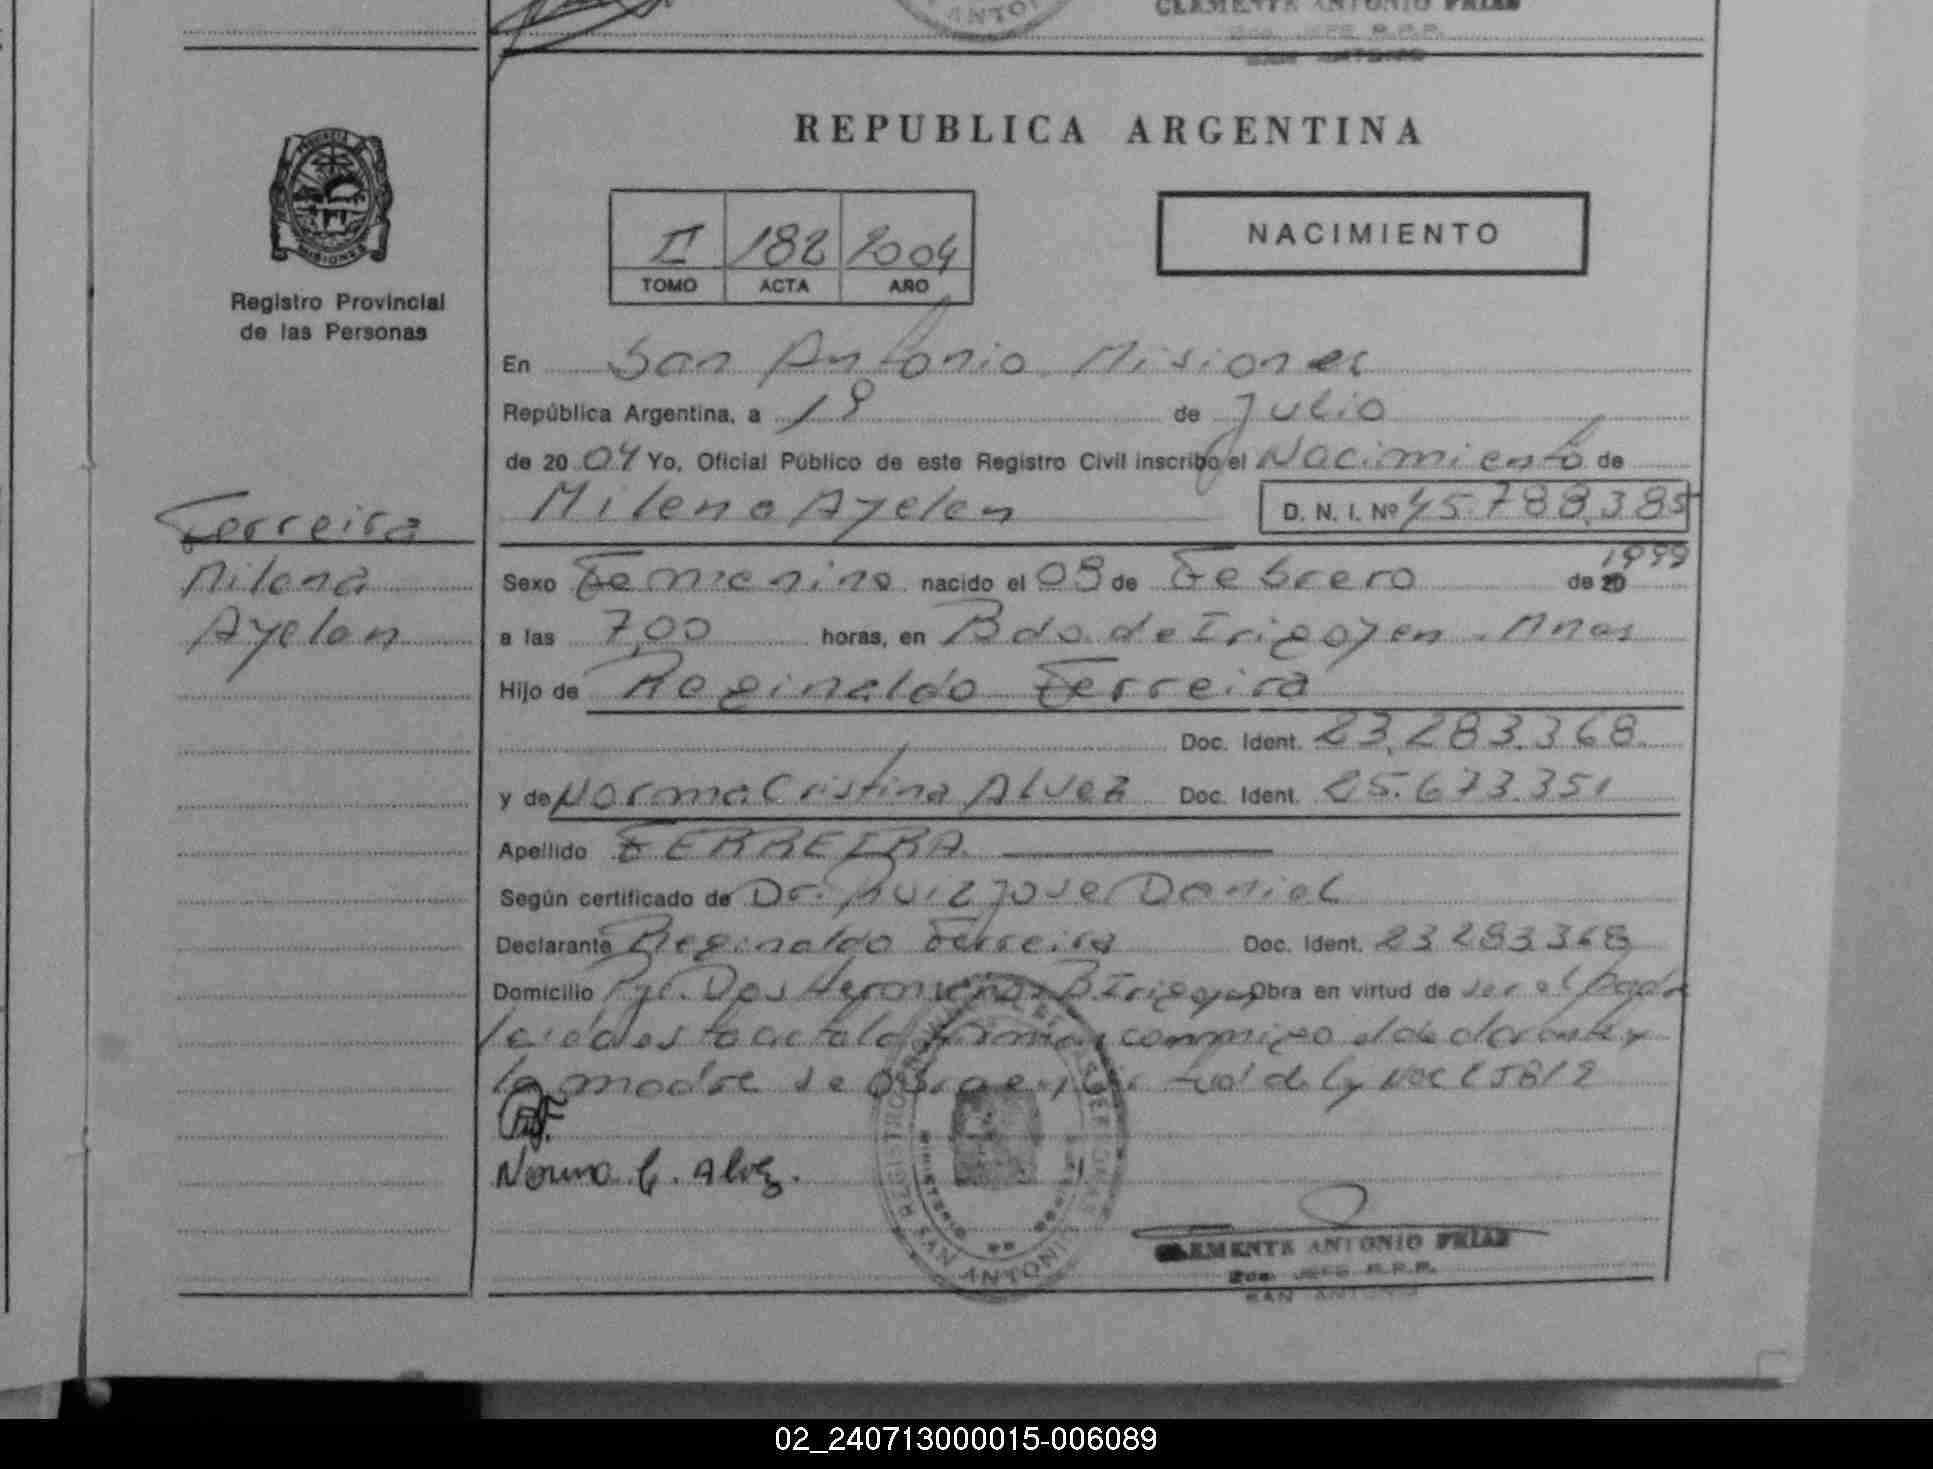 CLEMENTE ANTONIO FRIAS
2do. JEFE R.P.P.
SAN ANTONIO
PROVINCIA
MISIONES
Registro Provincial
de las Personas
Ferreira
Milena
Ayelen
REPUBLICA ARGENTINA
II 182 2004
TOMO ACTA AÑO
NACIMIENTO
En San Antonio Misiones
República Argentina, a 19 de Julio
de 20 04 Yo, Oficial Público de este Registro Civil inscribo el Nacimiento de
Milena Ayelen D. N. I. Nº 45.788.385
1999
Sexo Femenino nacido el 09 de Febrero de 20
a las 7,00 horas, en Bdo. de Irigoyen - Mnes
Hijo de Reginaldo Ferreira
Doc. Ident. 23.283.368
y de Norma Cristina Alvez Doc. Ident. 25.673.351
Apellido FERREIRA
Según certificado de Dr. Ruiz Jose Daniel
Declarante Reginaldo Ferreira Doc. Ident. 23 283 368
Domicilio Pje. Dos Hermanas B Irigoyen Obra en virtud de ser el padre
leida esta acta la firman conmigo el declarante y
la madre se obra en virtud de ley Nº
Norma C. Alvez.
SAN ANTONIO
CLEMENTE ANTONIO FRIAS
2do. JEFE R.P.P.
SAN ANTONIO
02_240713000015-006089